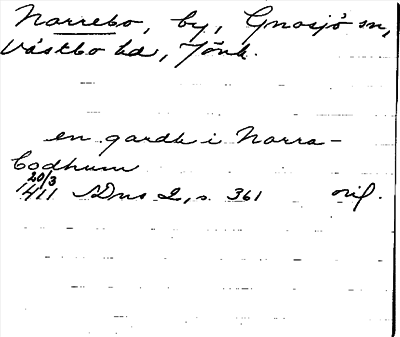 Norrebo, by, Gnosjö sn,
Västbo hd, Jönk.
en gardh i Norra-
bodhum
20/3
1411 SDns 2, s. 361 orig.